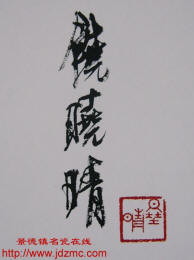 饶晓晴
景德镇名瓷在线
http://www.jdzmc.com